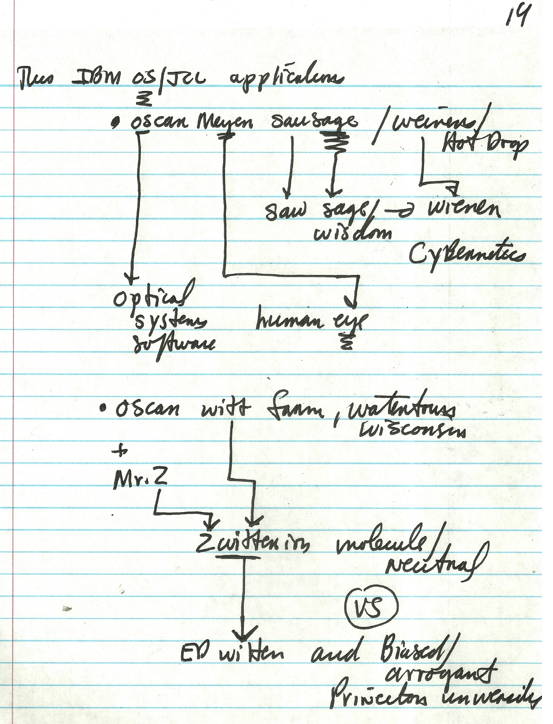 19
Thus IBM OS/JCL applications
• oscar Meyer sausage / weiners/
Hot Drop
saw sage/ → wiener
wisdom
Cybernetics
optical
systems
software
human eye
• oscar witt farm, watertown
wisconsin
+
Mr. Z
Zwitterion molecule/
Neutral
VS
ED witten and Biased/
arrogant
Princeton university